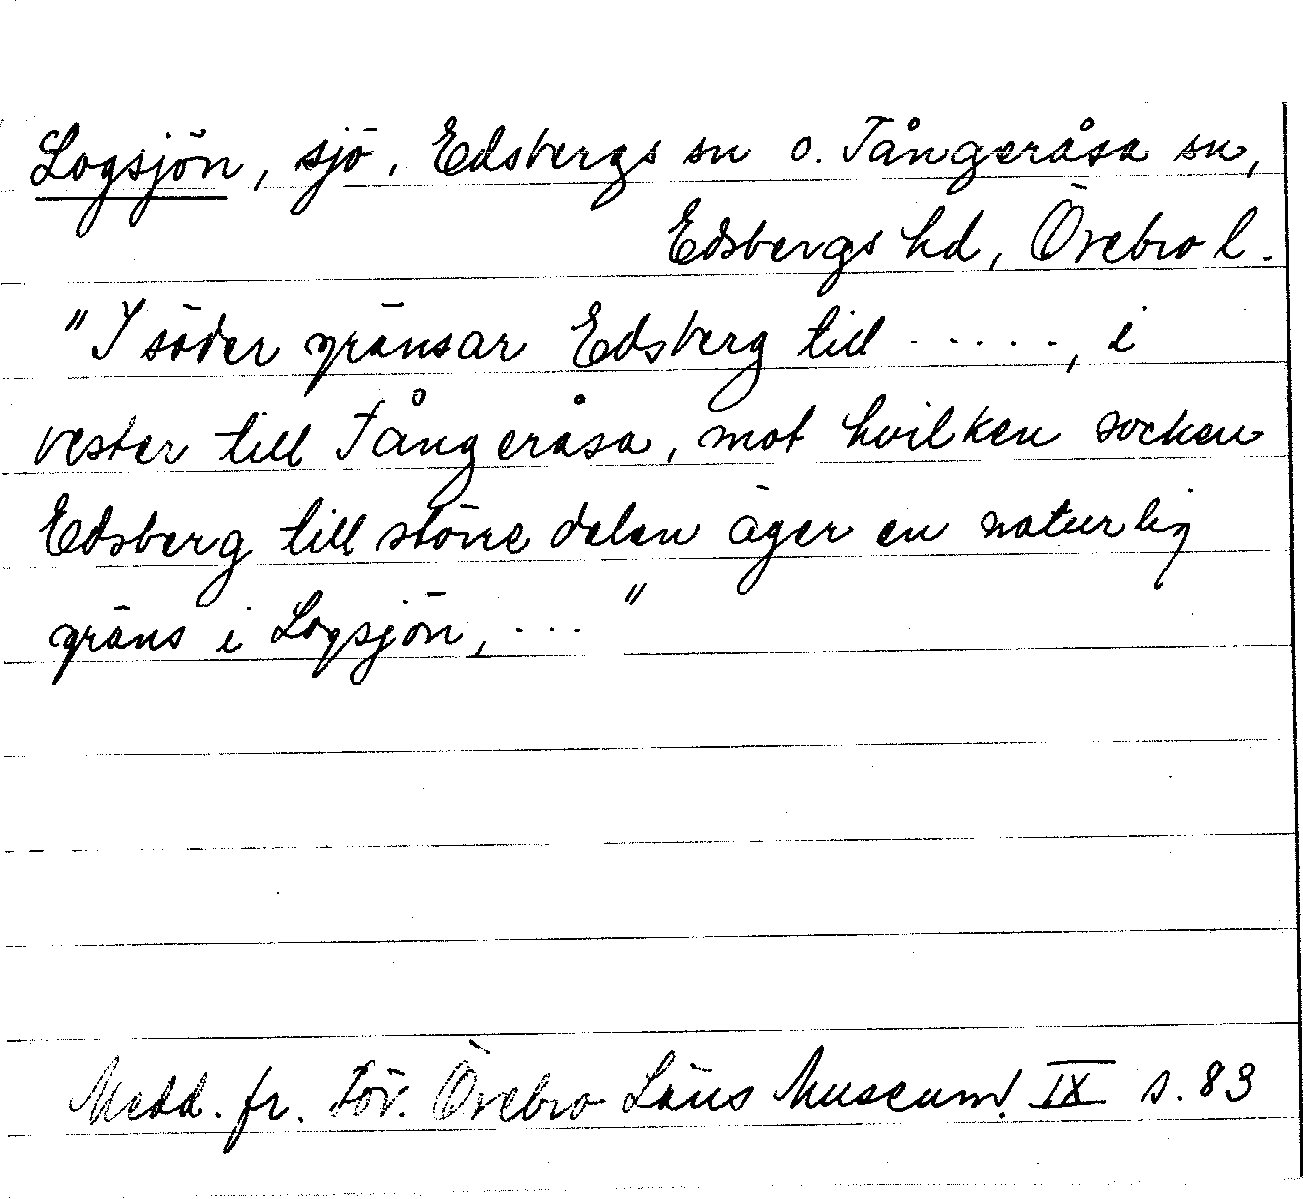 Logsjön, sjö, Edsbergs sn o. Tångeråsa sn,
Edsbergs hd, Örebro l.
"I söder gränsar Edsberg till ....., i
vester till Tångeråsa, mot hvilken socken
Edsberg till större delen äger en naturlig
gräns i Logsjön, ... "
Medd. fr. För. Örebro Läns Museum. IX s. 83